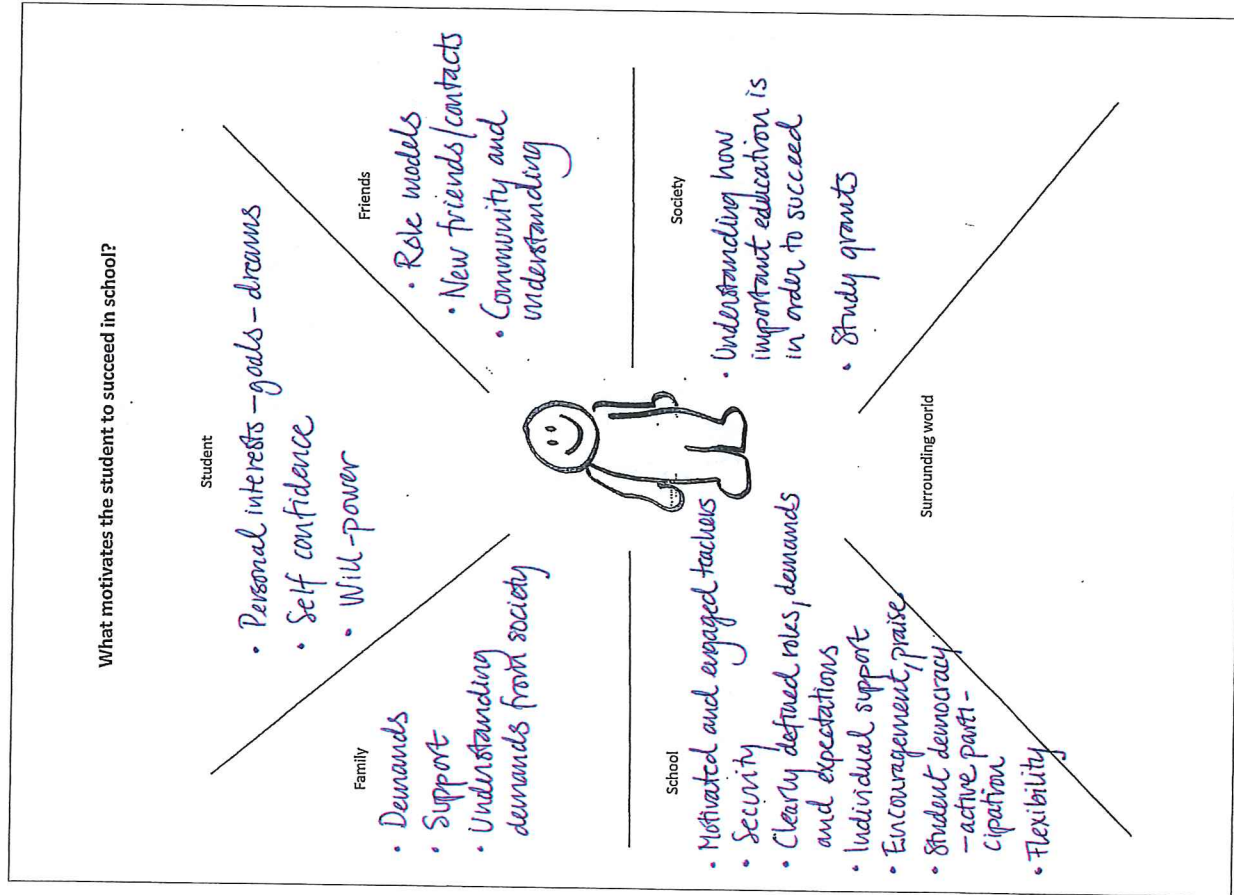 What motivates the student to succeed in school?
Student
• Personal interests – goals – dreams
• Self confidence
• Will-power
Family
• Demands
• Support
• Understanding
demands from society
Friends
• Role models
• New friends/contacts
• Community and
understanding
School
• Motivated and engaged teachers
• Security
• Clearly defined roles, demands
and expectations
• Individual support
• Encouragement, praise.
• Student democracy
– active parti-
cipation
• Flexibility
Society
• Understanding how
important education is
in order to succeed
• Study grants
Surrounding world